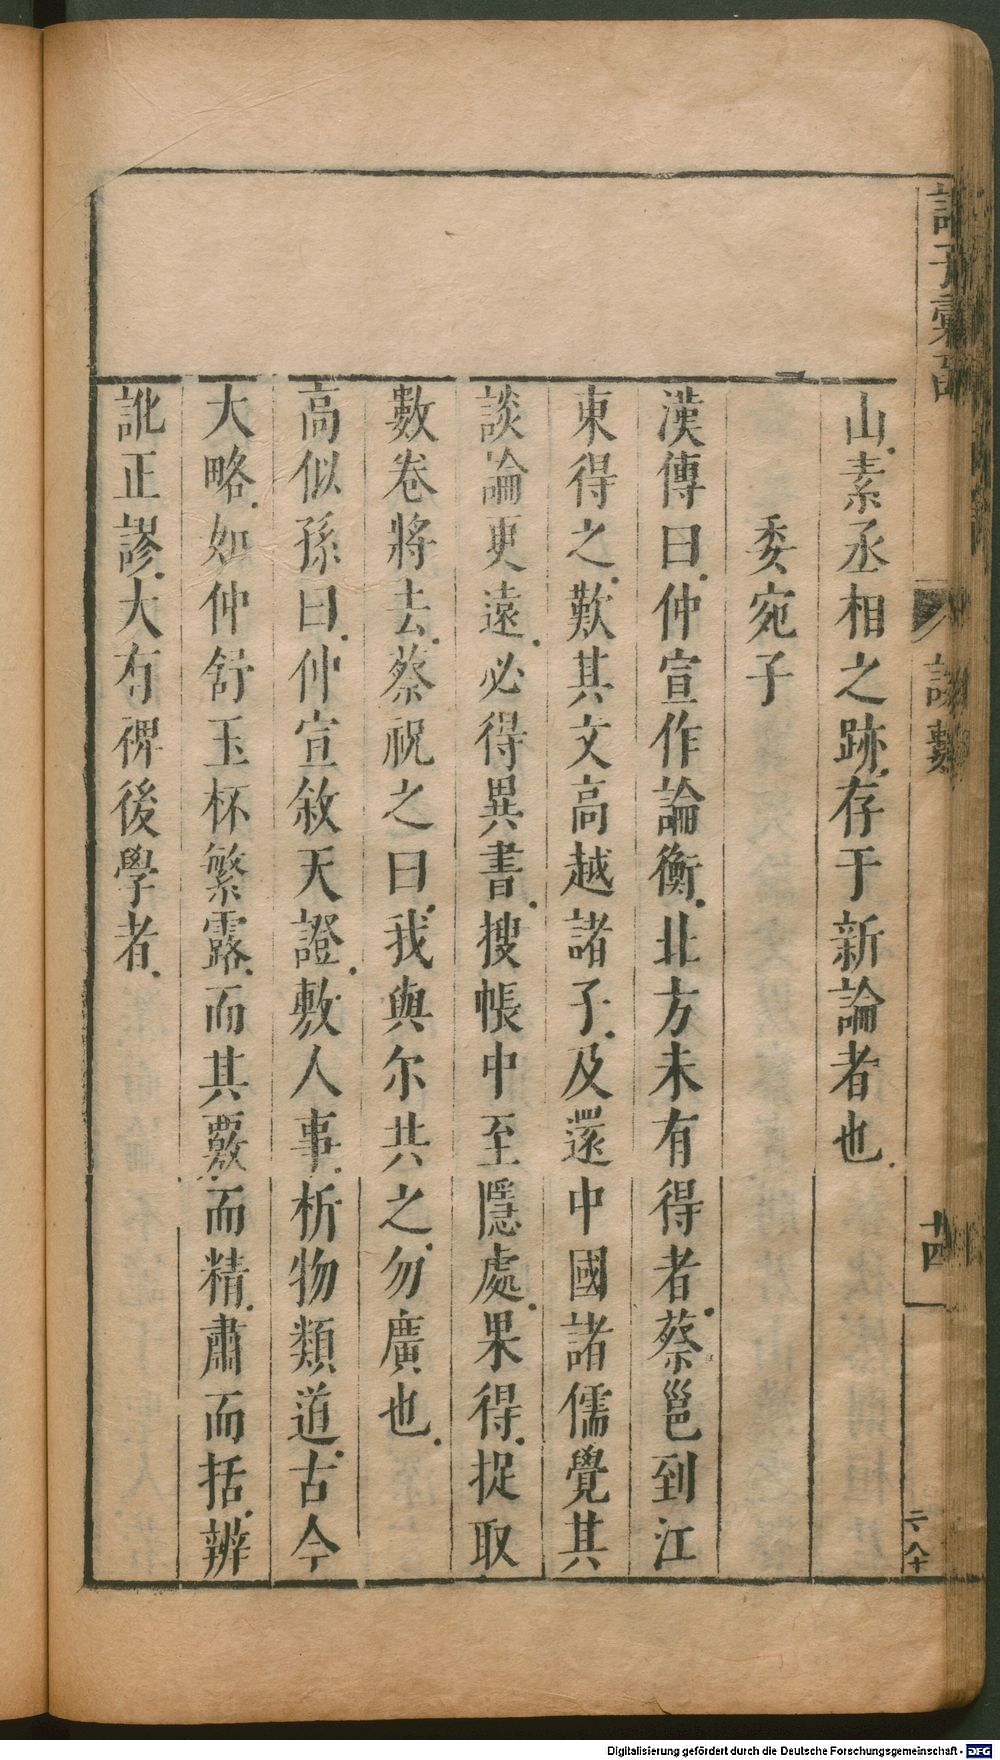 山素丞相之跡存于新論者也
委宛子
漢傳曰仲宣作論衡北方未有得者蔡邕到江
東得之歎其文高越諸子及還中國諸儒覺其
談論更遠必得異書搜帳中至隱處果得捉取
數卷將去蔡祝之曰我與尔共之勿廣也
高似孫曰仲宣敘天證敷人事析物類道古今
大略如仲舒玉杯繁露而其覈而精肅而括辨
訛正謬大有裨後學者
諸子彙函
十四
二八十
Digitalisierung gefördert durch die Deutsche Forschungsgemeinschaft - DFG